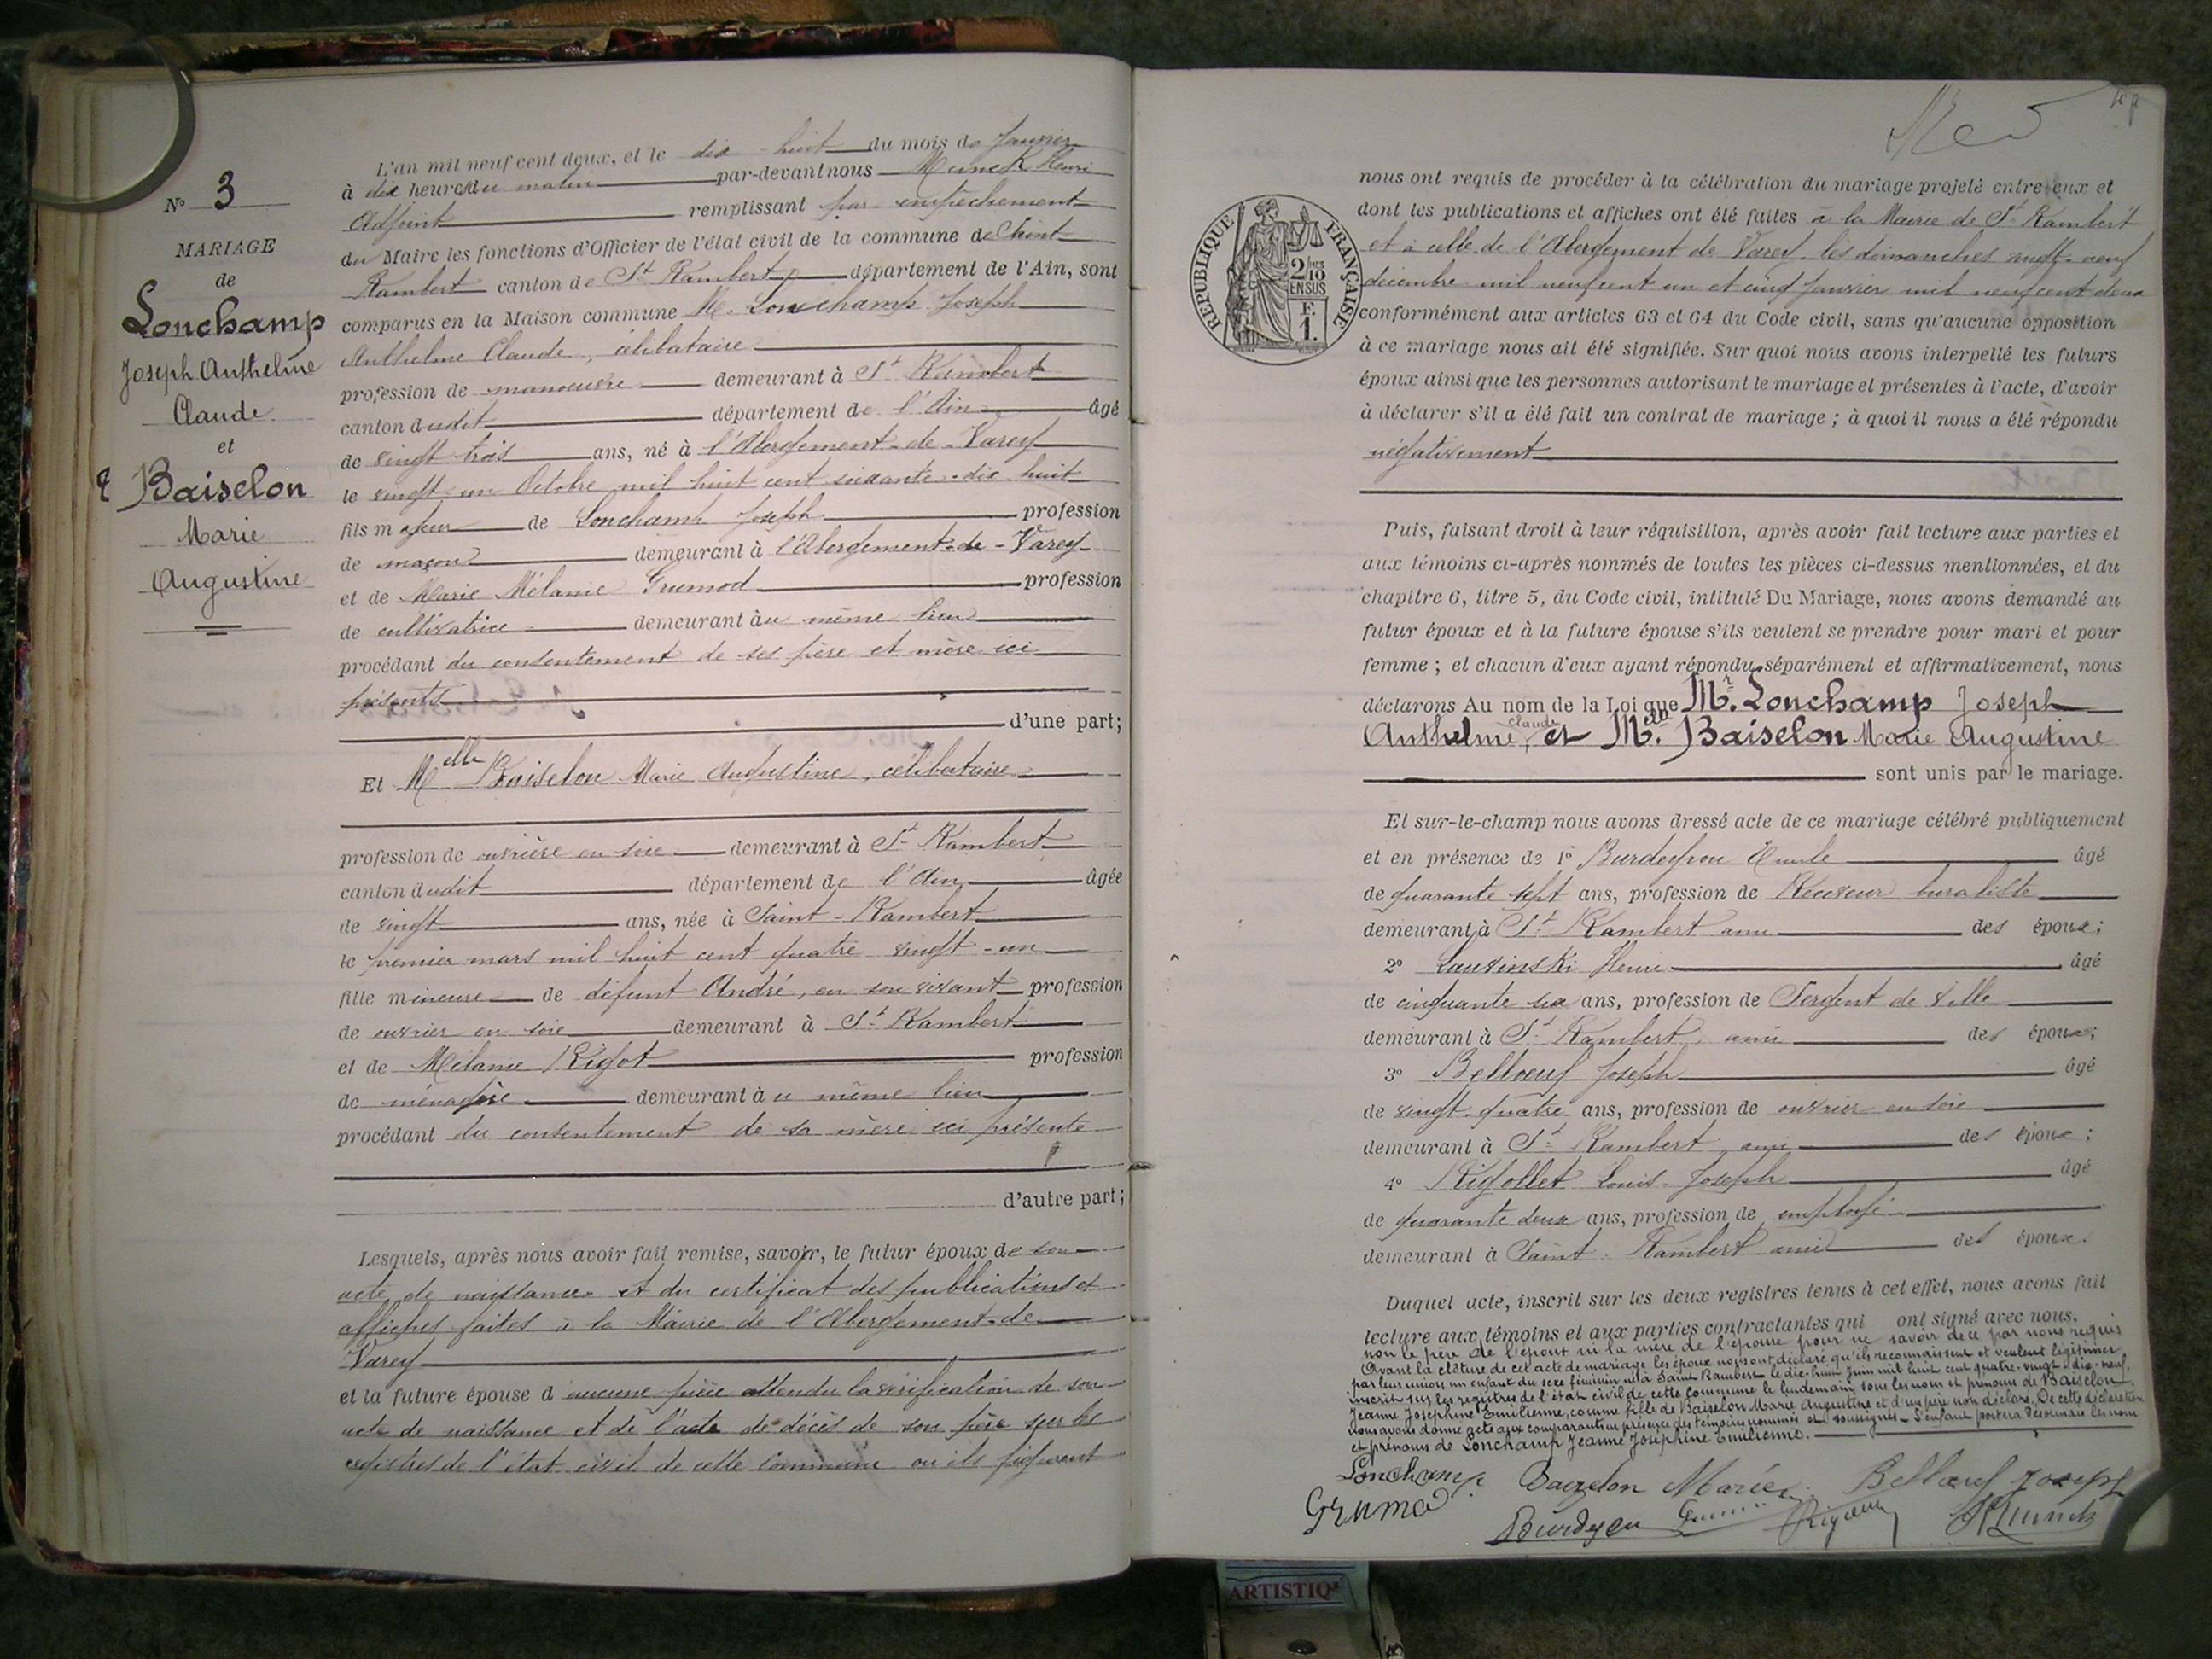 N° 3
MARIAGE
de
Lonchamp
Joseph Anthelme
Claude
et
Baiselon
Marie
Augustine
L'an mil neuf cent deux, et le dix-huit du mois de Janvier
à dix heures du matin par-devant nous Munck Henri
Adjoint remplissant par empêchement
du Maire les fonctions d'Officier de l'état civil de la commune de Saint
Rambert canton de St Rambert département de l'Ain, sont
comparus en la Maison commune M. Lonchamp Joseph
Anthelme Claude, célibataire
profession de manœuvre demeurant à St Rambert
canton dudit département de l'Ain âgé
de vingt trois ans, né à l'Abergement-de-Varey
le vingt un Octobre mil huit cent soixante-dix huit
fils majeur de Lonchamp Joseph profession
de maçon demeurant à l'Abergement-de-Varey
et de Marie Mélanie Grumod profession
de cultivatrice demeurant au même lieu
procédant du consentement de ses père et mère ici
présents
d'une part;
Et Melle Baiselon Marie Augustine, célibataire
profession de ouvrière en soie demeurant à St Rambert
canton dudit département de l'Ain âgée
de vingt ans, née à Saint-Rambert
le premier mars mil huit cent quatre vingt-un
fille mineure de défunt André, en son vivant profession
de ouvrier en soie demeurant à St Rambert
et de Mélanie Rigot profession
de ménagère demeurant au même lieu
procédant du consentement de sa mère ici présente
d'autre part;
Lesquels, après nous avoir fait remise, savoir, le futur époux de son
acte de naissance et du certificat des publications et
affiches faites à la Mairie de l'Abergement-de
Varey
et la future épouse d'aucune pièce attendu la vérification de son
acte de naissance et de l'acte de décès de son père sur les
registres de l'état civil de cette Commune où ils figurent
RÉPUBLIQUE FRANÇAISE
2/10
EN SUS
F.
1.
nous ont requis de procéder à la célébration du mariage projeté entre eux et
dont les publications et affiches ont été faites à la Mairie de St Rambert
et à celle de l'Abergement de Varey, les dimanches vingt-neuf
décembre mil neuf cent un et cinq Janvier mil neuf cent deux
conformément aux articles 63 et 64 du Code civil, sans qu'aucune opposition
à ce mariage nous ait été signifiée. Sur quoi nous avons interpellé les futurs
époux ainsi que les personnes autorisant le mariage et présentes à l'acte, d'avoir
à déclarer s'il a été fait un contrat de mariage; à quoi il nous a été répondu
négativement
Puis, faisant droit à leur réquisition, après avoir fait lecture aux parties et
aux témoins ci-après nommés de toutes les pièces ci-dessus mentionnées, et du
chapitre 6, titre 5, du Code civil, intitulé Du Mariage, nous avons demandé au
futur époux et à la future épouse s'ils veulent se prendre pour mari et pour
femme; et chacun d'eux ayant répondu séparément et affirmativement, nous
déclarons Au nom de la Loi que Mr. Lonchamp Joseph
Anthelme, Claude et Mlle. Baiselon Marie Augustine
sont unis par le mariage.
Et sur-le-champ nous avons dressé acte de ce mariage célébré publiquement
et en présence de 1° Burdeyron Emile âgé
de quarante sept ans, profession de Receveur buraliste
demeurant à St Rambert ami des époux;
2° Lauvinski Henri âgé
de cinquante six ans, profession de Sergent de ville
demeurant à St Rambert ami des époux;
3° Bellœuf Joseph âgé
de vingt-quatre ans, profession de ouvrier en soie
demeurant à St Rambert ami des époux;
4° Rigollet Louis-Joseph âgé
de quarante deux ans, profession de employé
demeurant à Saint-Rambert ami des époux.
Duquel acte, inscrit sur les deux registres tenus à cet effet, nous avons fait
lecture aux témoins et aux parties contractantes qui ont signé avec nous.
non le père de l'époux ni la mère de l'épouse pour ne savoir de ce par nous requis
Avant la clôture de cet acte de mariage les époux nous ont déclaré qu'ils reconnaissent et veulent légitimer
par leur union un enfant du sexe féminin né à Saint Rambert le dix-huit Juin mil huit cent quatre-vingt-dix-neuf,
inscrit sur les registres de l'état civil de cette commune le lendemain sous les nom et prénoms de Baiselon
Jeanne Joséphine Emilienne, comme fille de Baiselon Marie Augustine et d'un père non déclaré. De cette déclaration
nous avons donné acte aux comparants en présence des témoins nommés et soussignés. L'enfant portera désormais les nom
et prénoms de Lonchamp Jeanne Joséphine Emilienne.
Lonchamp Baizelon Marie Bellœuf Joseph
Grumo Burdeyron HMunck
ARTISTIQ